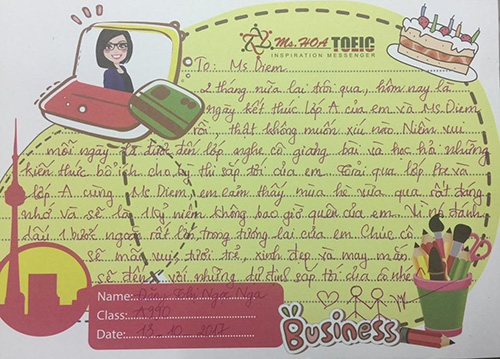 Ms. HOA TOEIC
INSPIRATION MESSENGER
To: Ms Diem
2 tháng nữa lại trôi qua, hôm nay là
ngày kết thúc lớp A của em và Ms Diem
rồi, thật không muốn xíu nào. Niềm vui
mỗi ngày là được đến lớp nghe cô giảng bài và học hỏi những
kiến thức bổ ích cho kỳ thi sắp tới của em. Trải qua lớp Pre và
lớp A cùng Ms Diem, em cảm thấy mùa hè vừa qua rất đáng
nhớ và sẽ là 1 kỷ niệm không bao giờ quên của em. Vì nó đánh
dấu 1 bước ngoặt rất lớn trong tương lai của em. Chúc cô
sẽ mãi vui tươi, trẻ, xinh đẹp và may mắn
sẽ đến với những dự định sắp tới của cô
Name: Nga
Class: A990
Date: 13.10.2017
Business